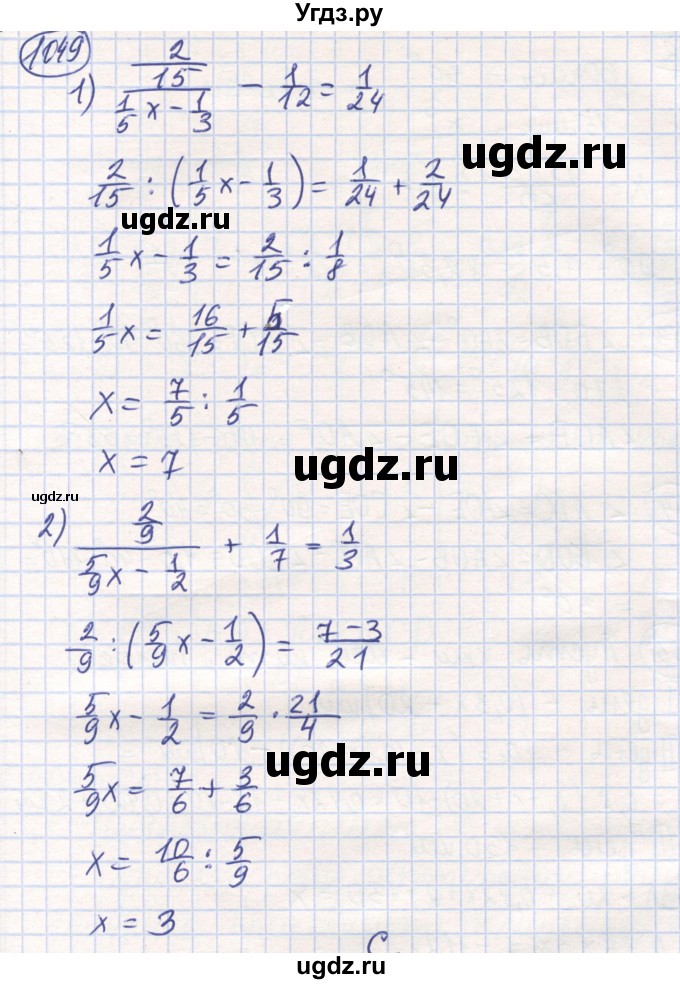 Угдз.ру
1049
1) (2/15)/(1/5 x - 1/3) - 1/12 = 1/24
ugdz.ru
2/15 : (1/5 x - 1/3) = 1/24 + 2/24
ugdz.ru
1/5 x - 1/3 = 2/15 : 1/8
1/5 x = 16/15 + 5/15
x = 7/5 : 1/5
x = 7
ugdz.ru
ugdz.ru
2) (2/9)/(5/9 x - 1/2) + 1/7 = 1/3
2/9 : (5/9 x - 1/2) = (7-3)/21
5/9 x - 1/2 = 2/9 · 21/4
ugdz.ru
5/9 x = 7/6 + 3/6
x = 10/6 : 5/9
x = 3
ugdz.ru